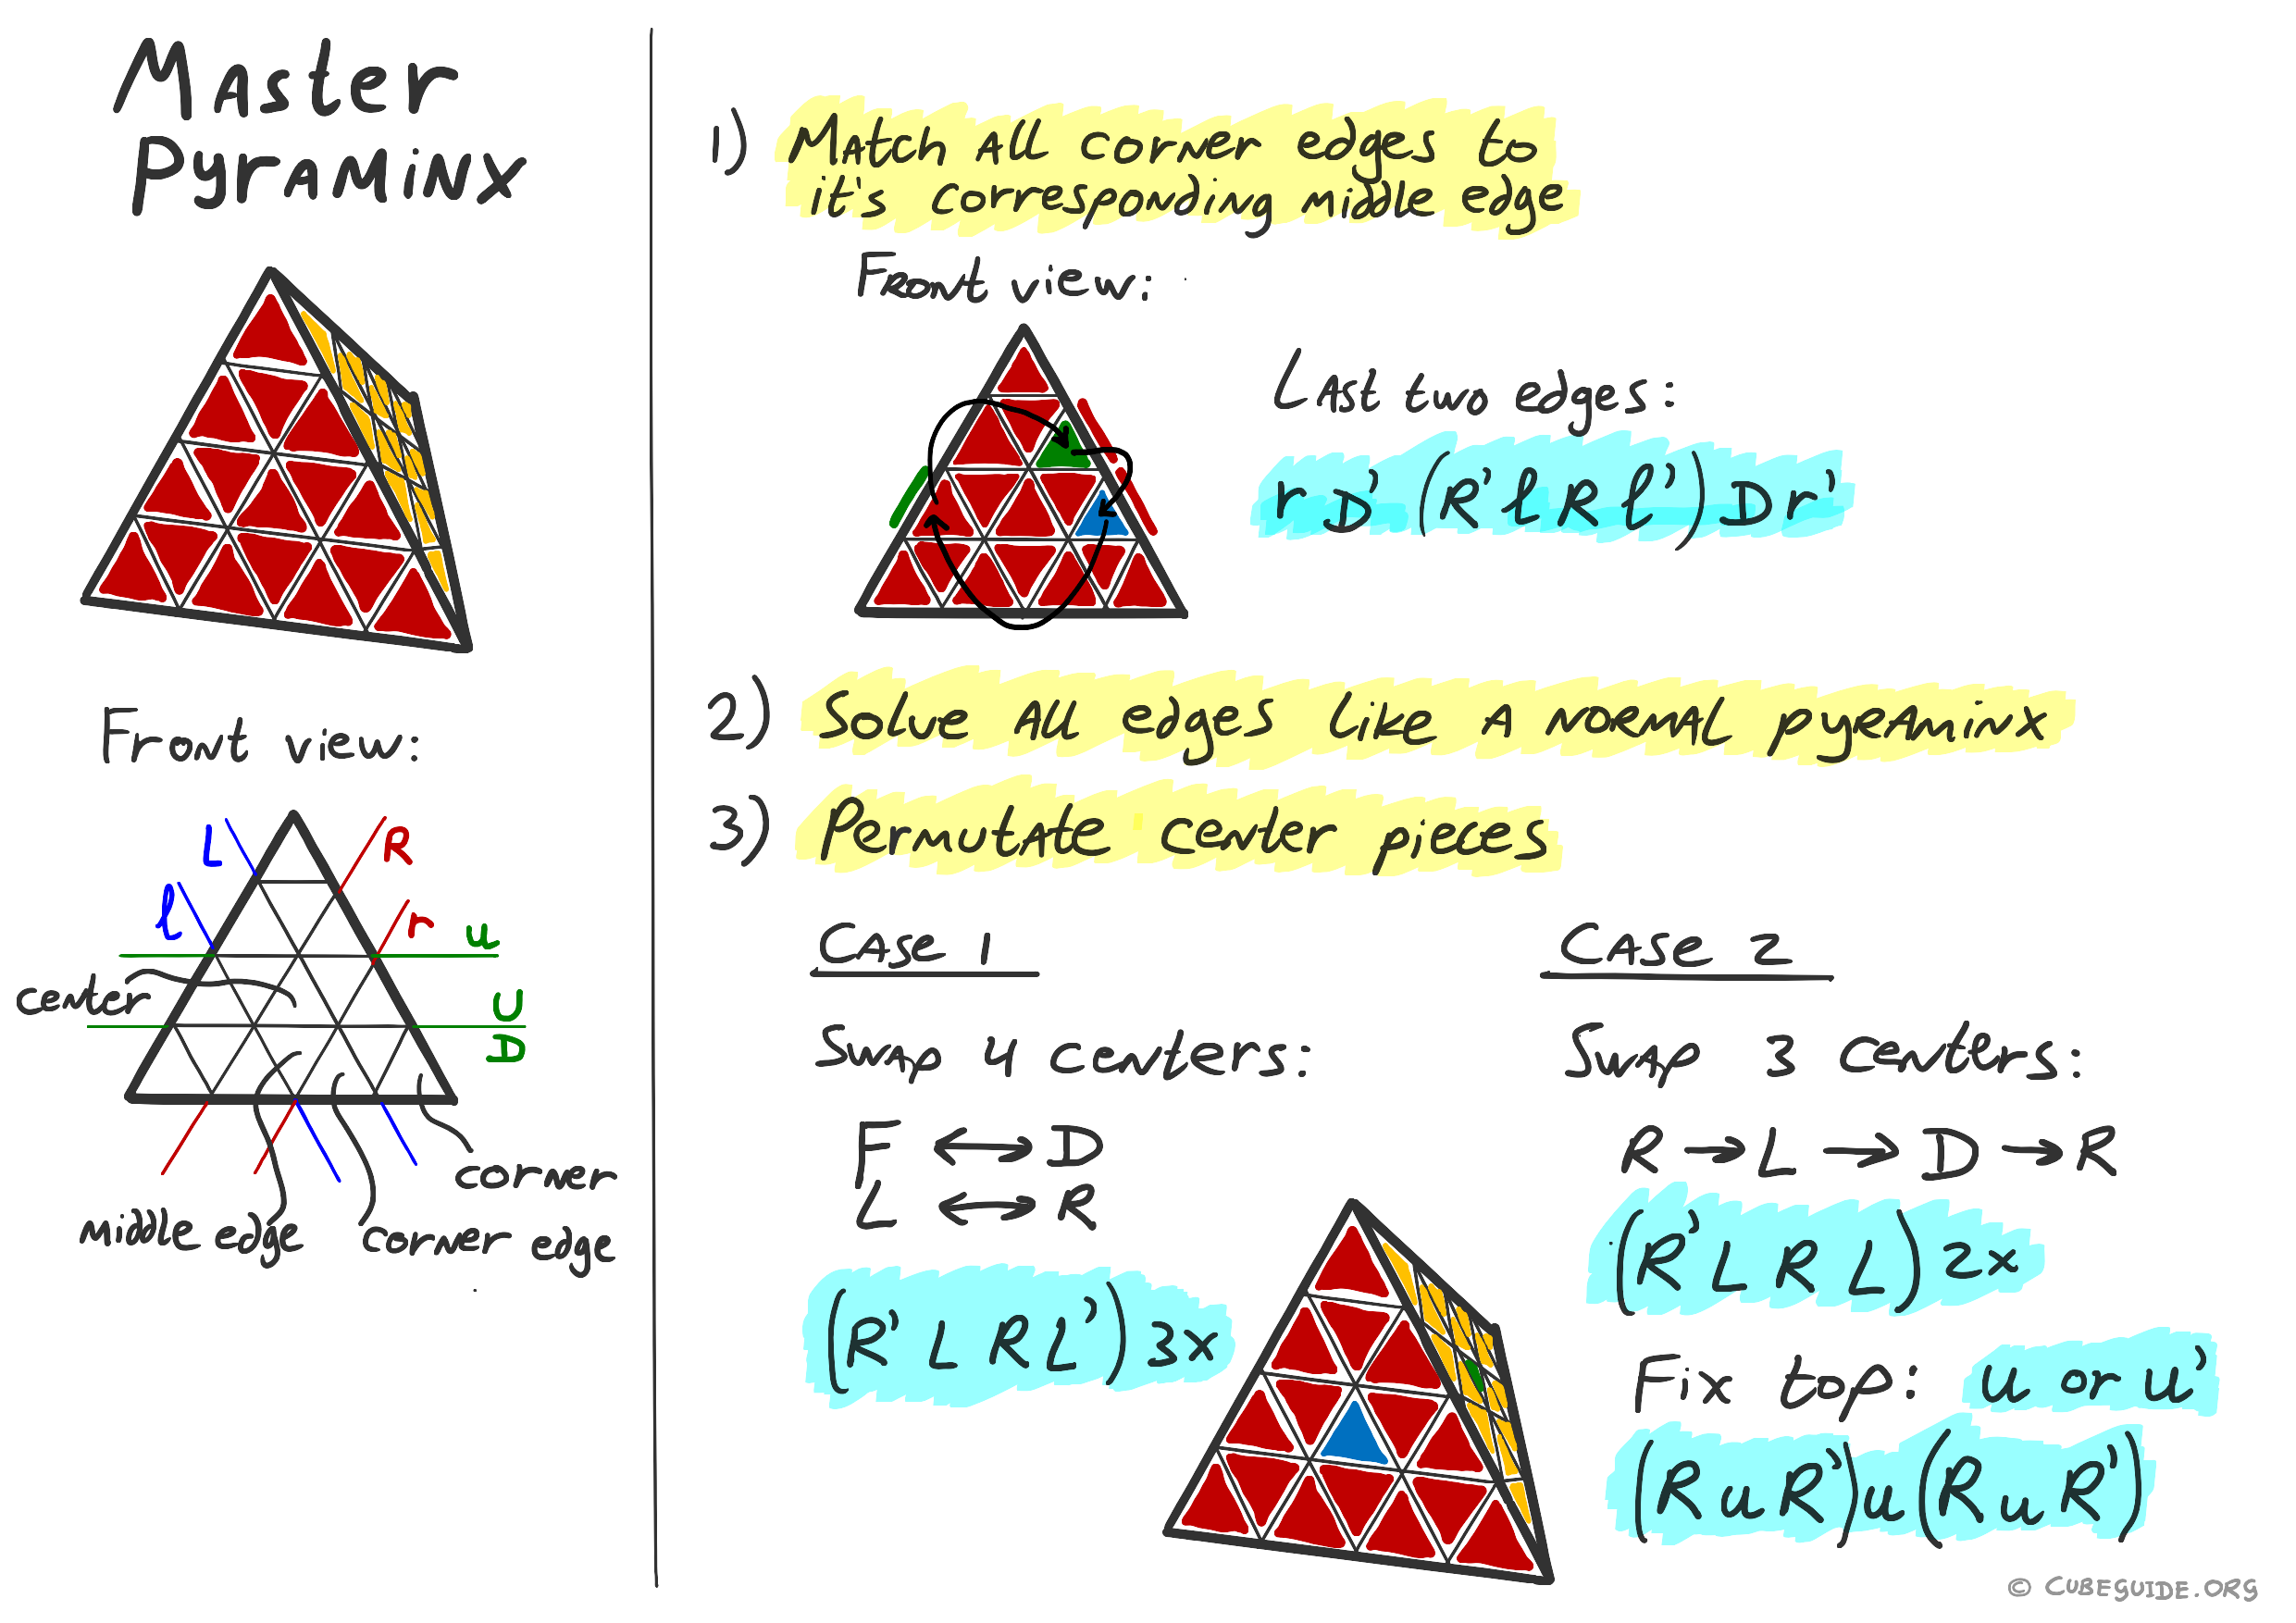 Master
Pyraminx
Front view:
L
R
l
r
u
center
U
D
corner
middle edge
corner edge
1) Match all corner edges to
it's corresponding middle edge
Front view:
Last two edges:
r D' (R' l R l') D r'
2) Solve all edges like a normal pyraminx
3) Permutate center pieces
Case 1
Swap 4 centers:
F ↔ D
L ↔ R
(R' L R L') 3x
Case 2
Swap 3 centers:
R → L → D → R
(R' L R L) 2x
Fix top: u or u'
(R u R') u (R u R')
© CUBEGUIDE.ORG